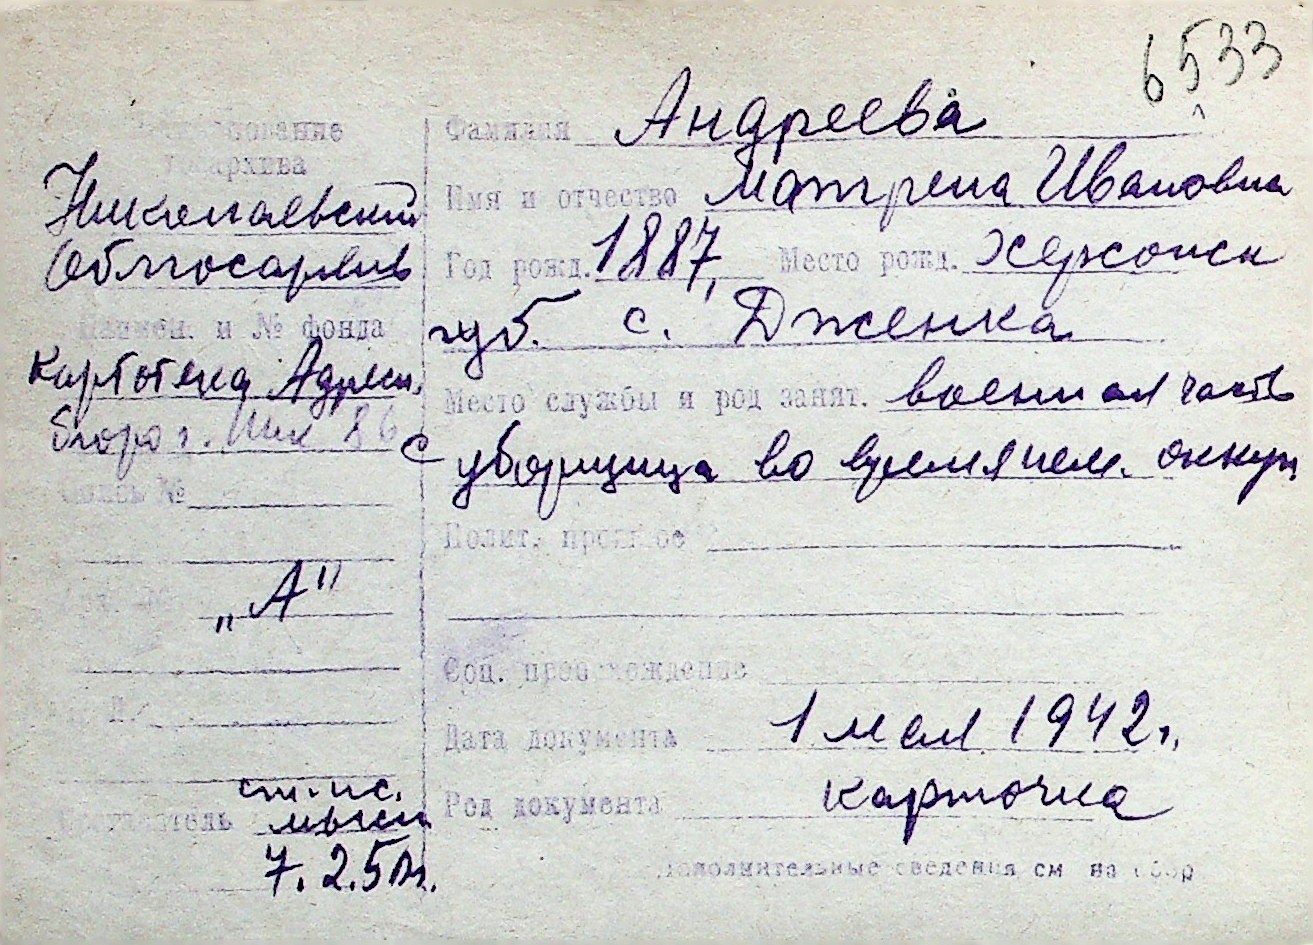 6533
Фамилия Андреева
Имя и отчество Матрена Ивановна
Год рожд. 1887, Место рожд. Херсонск
губ. с. Дженка
Место службы и род занят. военная часть
уборщица во время нем. оккуп.
Полит. прошлое
Соц. происхождение
Дата документа 1 мая 1942 г.
Род документа карточка
Дополнительные сведения см на обор
госархива
Николаевский
Облгосархив
Наимен. и № фонда
Картотека Адресн.
бюро г. Ник
Опись №
„А"
Составитель ст. н.с.
7.2.5